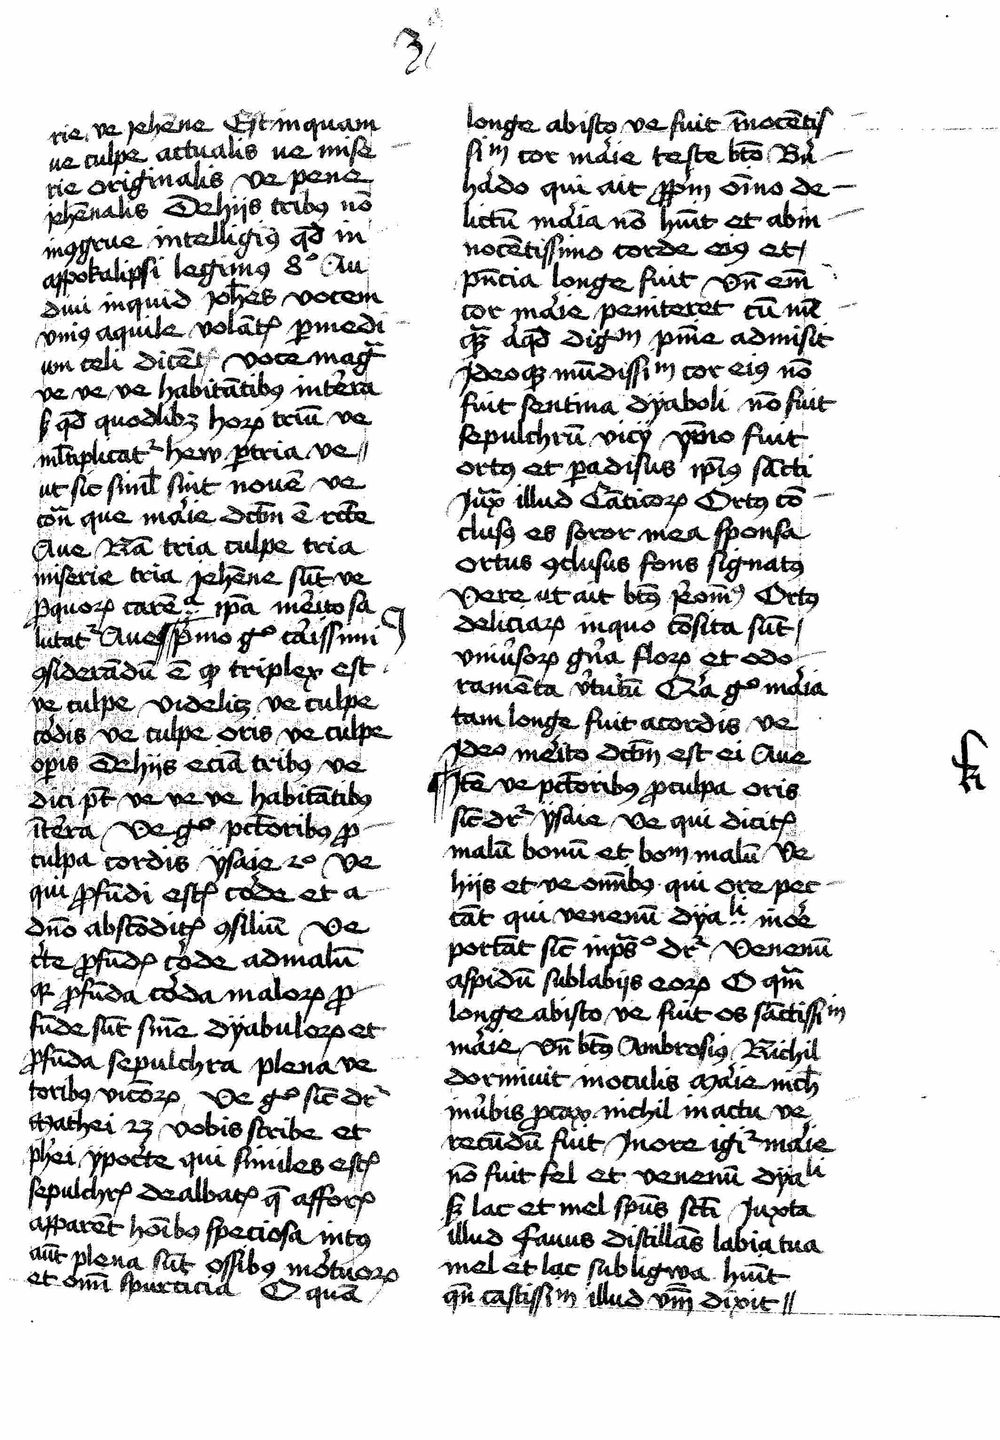 3
rie ve jehēne Est inquam
ve culpe actualis ve mise
rie originalis ve pene
jehēnalis De hijs tribꝰ nō
intelligiꝰ qd̄ in
appokalipsi legimꝰ 8° Au
diui inquid joh̄es vocem
vniꝰ aquile volātꝭ ꝑ medi
um celi dicēt voce mag̅
ve ve ve habitātibꝰ in terra
qd̄ quodlibꝫ hoꝝ triū ve
ml̄tiplicatᷣ hew ꝑ tria ve
ut sic simł sint nouē ve
cōn que marie dc̄m ē rc̄te
Aue Nā tria culpe tria
miserie tria jehēne sūt ve
ꝓ quoꝝ carēᵃ ip̄a merito sa
lutatᷣ Aue ꝓ pmo gͦ carissimi
ꝯsiderādū ē ꝙ triplex est
ve culpe videlicꝫ ve culpe
cordis ve culpe oris ve culpe
oꝑis De hijs eciā tribꝰ ve
dici pt̄ ve ve ve habitātibꝰ
in terra Ve gͦ pct̄oribꝰ ꝓ
culpa cordis ysaie 2° Ve
qui ꝓfūdi estꝭ corde et a
dn̄o abscōditꝭ ꝯsiliū Ve
c̄te ꝓfūdꝭ corde ad malū
qꝛ ꝓfūda corda maloꝝ ꝓ
fūde sūt sine dyabuloꝝ et
ꝓfūda sepulchra plena ve
toribꝰ vicōꝝ Ve gͦ sic̄ drᷣ
Mathei 23 vobis scribe et
ph̄ei ypoc̄te qui similes estꝭ
sepulchrꝭ dealbatꝭ q̄ afforꝭ
apparēt hoībꝰ speciosa intꝰ
aūt plena sūt ossibꝰ mortuoꝝ
et om̄i spurcicia O quā
longe ab isto ve fuit īnocētis
siᵐ cor marie teste bt̄o Br̄
hardo qui ait ꝓpm̄ oīno de
lictū maria nō hūit et ab in
nocētissimo corde eiꝰ et
pn̄cia longe fuit Vn̄ em̄
cor marie peniteret cū nił
qꝫ aqd̄ digᵐ pn̄ie admisit
Ideoqꝫ mūdissiᵐ cor eiꝰ nō
fuit sentina dyaboli nō fuit
sepulchrū vicij ymo fuit
ortꝰ et ꝑadisus ip̄iꝰ sācti
Juxᵃ illud Cāticoꝝ Ortꝰ cō
clusꝰ es soror mea sponsa
ortus ꝯclusus fons signatꝰ
Vere ut ait bt̄ꝰ Jerōmꝰ Ortꝰ
deliciaꝝ in quo cōsita sūt
vniusoꝝ gn̄a floꝝ et odo
ramēta v̄tutū Q̄a gͦ maria
tam longe fuit a cordis ve
Ideo merito dc̄m est ei Aue
Itē ve pct̄oribꝰ ꝓ culpa oris
sic̄ drᷣ ysaie Ve qui dicitꝭ
malū bonū et boᵐ malū Ve
hijs et ve om̄ibꝰ qui ore pec
cāt qui venenū dyaˡⁱ in oē
portāt sic̄ in psͦ drᷣ Venenū
aspidū sub labijs eoꝝ O qm̄
longe ab isto ve fuit os sāctissiᵐ
marie Vn̄ bt̄ꝰ Ambrosiꝰ Nichil
dormiuit in oculis Marie nich̄
in v̄bis ꝓcax nichil in actu ve
recūdū fuit In ore igiᷣ marie
nō fuit fel et venenū dyaˡⁱ
lac et mel spūs sc̄ti Juxta
illud Fauus distillās labia tua
mel et lac sub ligwa hūit
qn̄ castissiᵐ illud vm̄ dixit